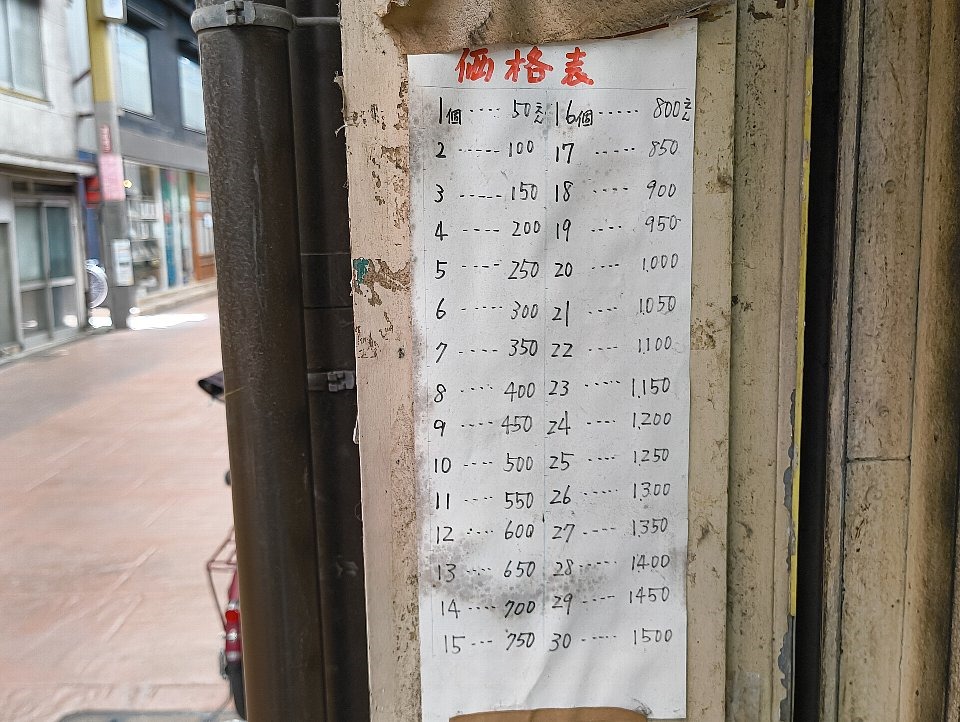 価格表
1個 ････ 50えん 16個 ･････ 800えん
2 ･････ 100 17 ･････ 850
3 ･････ 150 18 ････ 900
4 ････ 200 19 ････ 950
5 ････ 250 20 ････ 1,000
6 ････ 300 21 ････ 1,050
7 ････ 350 22 ････ 1,100
8 ････ 400 23 ･････ 1,150
9 ････ 450 24 ････ 1,200
10 ････ 500 25 ････ 1,250
11 ････ 550 26 ･････ 1,300
12 ････ 600 27 ･････ 1,350
13 ････ 650 28 ････ 1400
14 ････ 700 29 ････ 1450
15 ･･･ 750 30 ･････ 1500